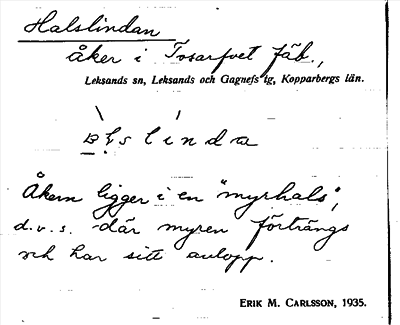 Halslindan
åker i Tosarfvet fäb.,
Leksands sn, Leksands och Gagnefs tg, Kopparbergs län.
Åkern ligger i en "myrhals",
d.v.s. där myren förträngs
och har sitt avlopp.
ERIK M. CARLSSON, 1935.